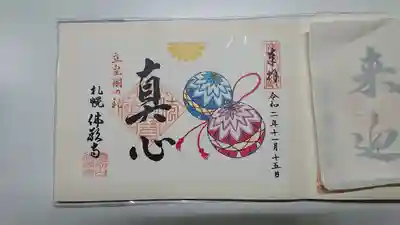 来迎
奉拝
令和二年十一月十五日
真心
立皇嗣の礼
札幌 佛願寺